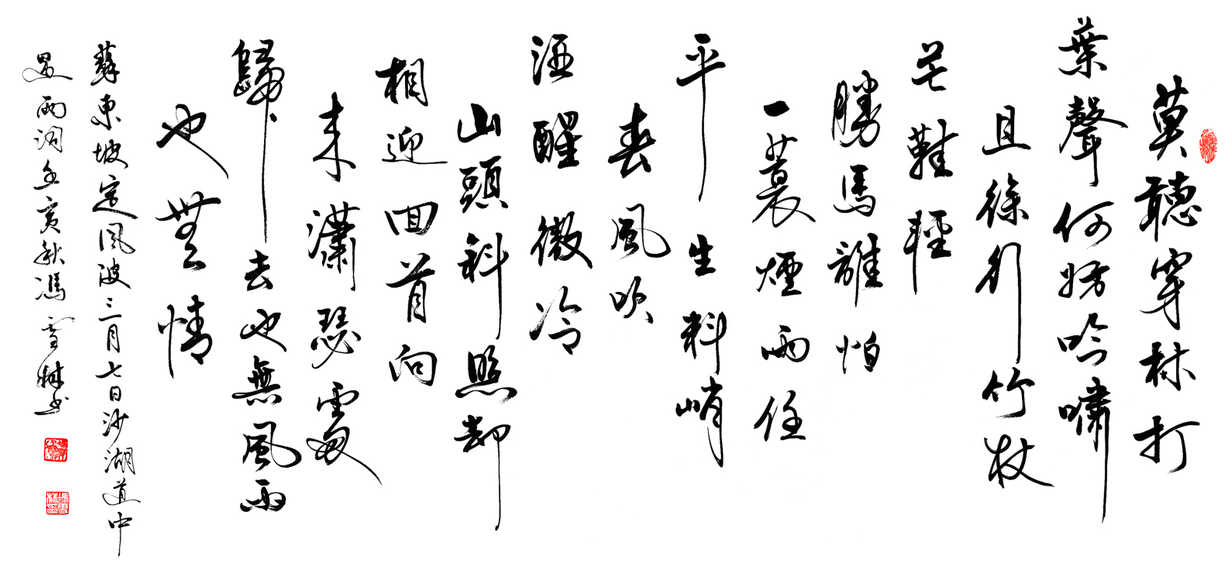 莫聽穿林打
葉聲何妨吟嘯
且徐行竹杖
芒鞋輕
勝馬誰怕
一蓑煙雨任
平生料峭
春風吹
酒醒微冷
山頭斜照却
相迎回首向
来瀟瑟處
歸去也無風雨
也無情
蘇東坡定風波三月七日沙湖道中
遇雨詞壬寅秋馮雪林书